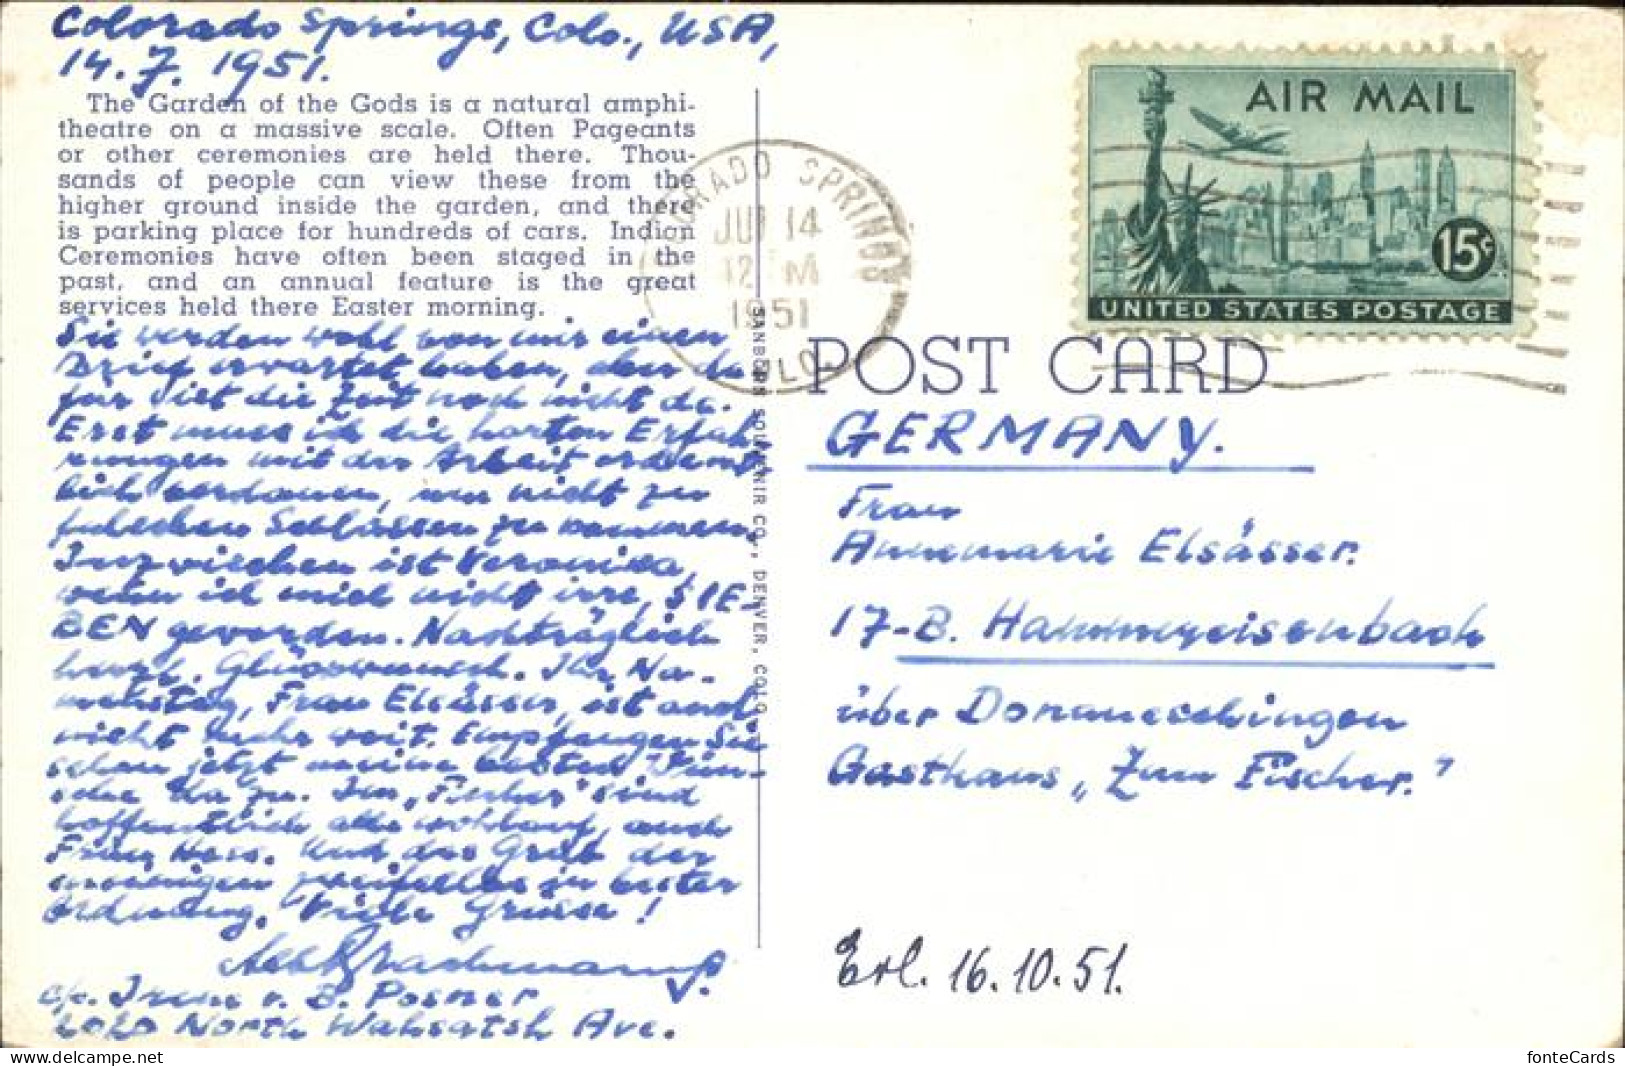 Colorado Springs, Colo., USA,
14. 7. 1951.
The Garden of the Gods is a natural amphi-
theatre on a massive scale. Often Pageants
or other ceremonies are held there. Thou-
sands of people can view these from the
higher ground inside the garden, and there
is parking place for hundreds of cars. Indian
Ceremonies have often been staged in the
past, and an annual feature is the great
services held there Easter morning.
Sie werden wohl von mir einen
Brief erwartet haben, aber da
für ist die Zeit noch nicht da.
Erst muss ich die harten Erfah-
rungen mit der Arbeit ordent-
lich verdauen, um nicht zu
falschen Schlüssen zu kommen.
Inzwischen ist Veronika,
wenn ich mich nicht irre, SIE-
BEN geworden. Nachträglich
herzl. Glückwunsch. Ihr Na-
menstag, Frau Elsässer, ist auch
nicht mehr weit. Empfangen Sie
schon jetzt meine besten Wün-
sche dazu. Im „Fischer" sind
hoffentlich alle wohlauf, auch
Frau Hess. Und das Grab der
meinigen zweifellos in bester
Ordnung. Viele Grüsse!
c/o. Irene v. B. Posner
2020 North Wahsatch Ave.
SANBORN SOUVENIR CO., DENVER, COLO.
COLORADO SPRINGS
JUL 14
12 M
1951
COLO.
AIR MAIL
15¢
UNITED STATES POSTAGE
POST CARD
GERMANY.
Frau
Annemarie Elsässer.
17-B. Hammereisenbach
über Donaueschingen
Gasthaus „Zum Fischer."
Erl. 16.10.51.
fonteCards